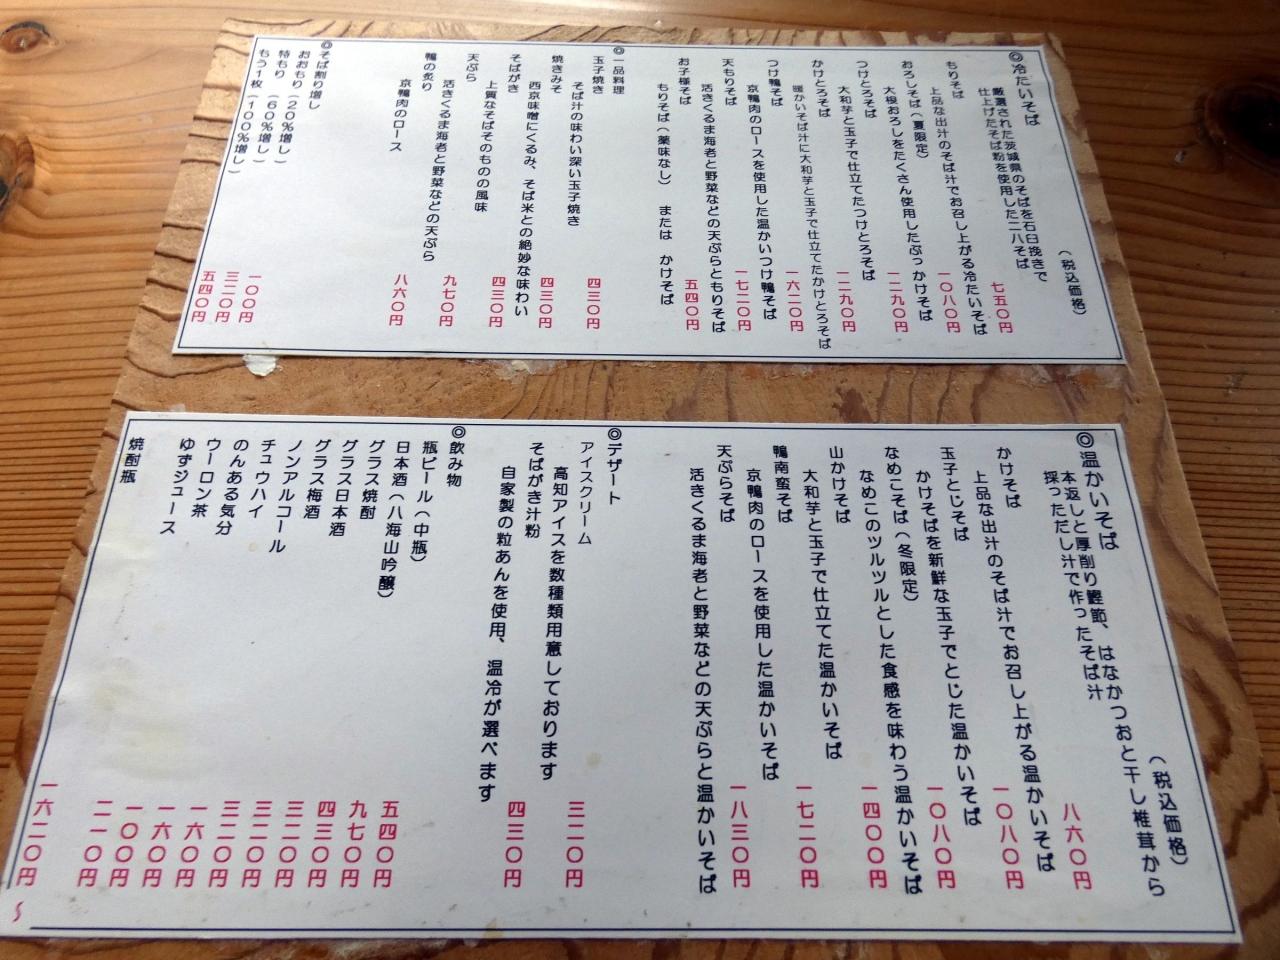 ◎冷たいそば
(税込価格)
厳選された茨城県のそばを石臼挽きで
仕上げたそば粉を使用した二八そば
もりそば 七五〇円
上品な出汁のそば汁でお召し上がる冷たいそば
おろしそば(夏限定) 一〇八〇円
大根おろしをたくさん使用したぶっかけそば
つけとろそば 一二九〇円
大和芋と玉子で仕立てたつけとろそば
かけとろそば 一二九〇円
暖かいそば汁に大和芋と玉子で仕立てたかけとろそば
つけ鴨そば 一六二〇円
京鴨肉のロースを使用した温かいつけ鴨そば
天もりそば 一七二〇円
活きくるま海老と野菜などの天ぷらともりそば
お子様そば 五四〇円
もりそば(薬味なし) または かけそば
◎一品料理
玉子焼き 四三〇円
そば汁の味わい深い玉子焼き
焼きみそ 四三〇円
西京味噌にくるみ、そば米との絶妙な味わい
そばがき 四三〇円
上質なそばそのものの風味
天ぷら 九七〇円
活きくるま海老と野菜などの天ぷら
鴨の炙り 八六〇円
京鴨肉のロース
◎そば割り増し
おおもり(20%増し) 一〇〇円
特もり(60%増し) 三二〇円
もう1枚(100%増し) 五四〇円
◎温かいそば
(税込価格)
本返しと厚削り鰹節、はなかつおと干し椎茸から
採っただし汁で作ったそば汁
かけそば 八六〇円
上品な出汁のそば汁でお召し上がる温かいそば
玉子とじそば 一〇八〇円
かけそばを新鮮な玉子でとじた温かいそば
なめこそば(冬限定) 一〇八〇円
なめこのツルツルとした食感を味わう温かいそば
山かけそば 一四〇〇円
大和芋と玉子で仕立てた温かいそば
鴨南蛮そば 一七二〇円
京鴨肉のロースを使用した温かいそば
天ぷらそば 一八三〇円
活きくるま海老と野菜などの天ぷらと温かいそば
◎デザート
アイスクリーム 三二〇円
高知アイスを数種類用意しております
そばがき汁粉 四三〇円
自家製の粒あんを使用、温冷が選べます
◎飲み物
瓶ビール(中瓶) 五四〇円
日本酒(八海山吟醸) 九七〇円
グラス焼酎 四三〇円
グラス日本酒 三二〇円
グラス梅酒 三二〇円
ノンアルコール 三二〇円
チュウハイ 一六〇円
のんある気分 一六〇円
ウーロン茶 一〇〇円
ゆずジュース 二一〇円
焼酎瓶 一六二〇円〜